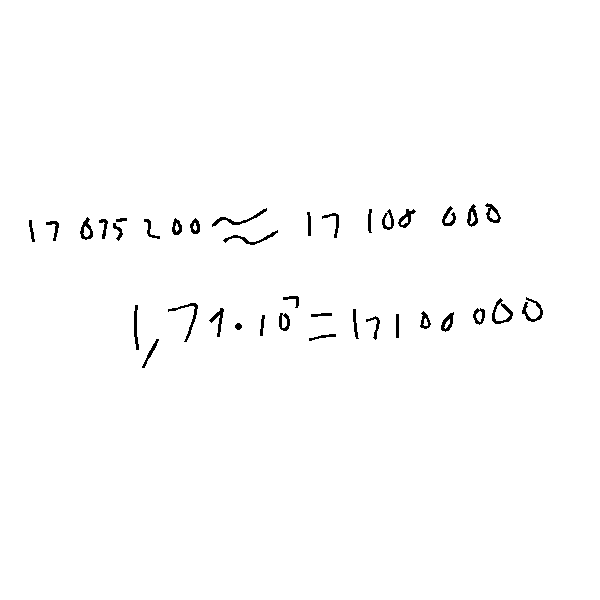 17 075 200 ≈ 17 100 000
1,71 · 10⁷ = 17 100 000